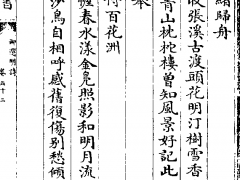 緒歸舟
張溪古渡頭花明汀樹雪香
青山枕柁樓曾知風景好記此
得百花洲
春水漾金鳬照影和明月流
沙鳥自相呼感舊復傷別愁傾
御選明詩